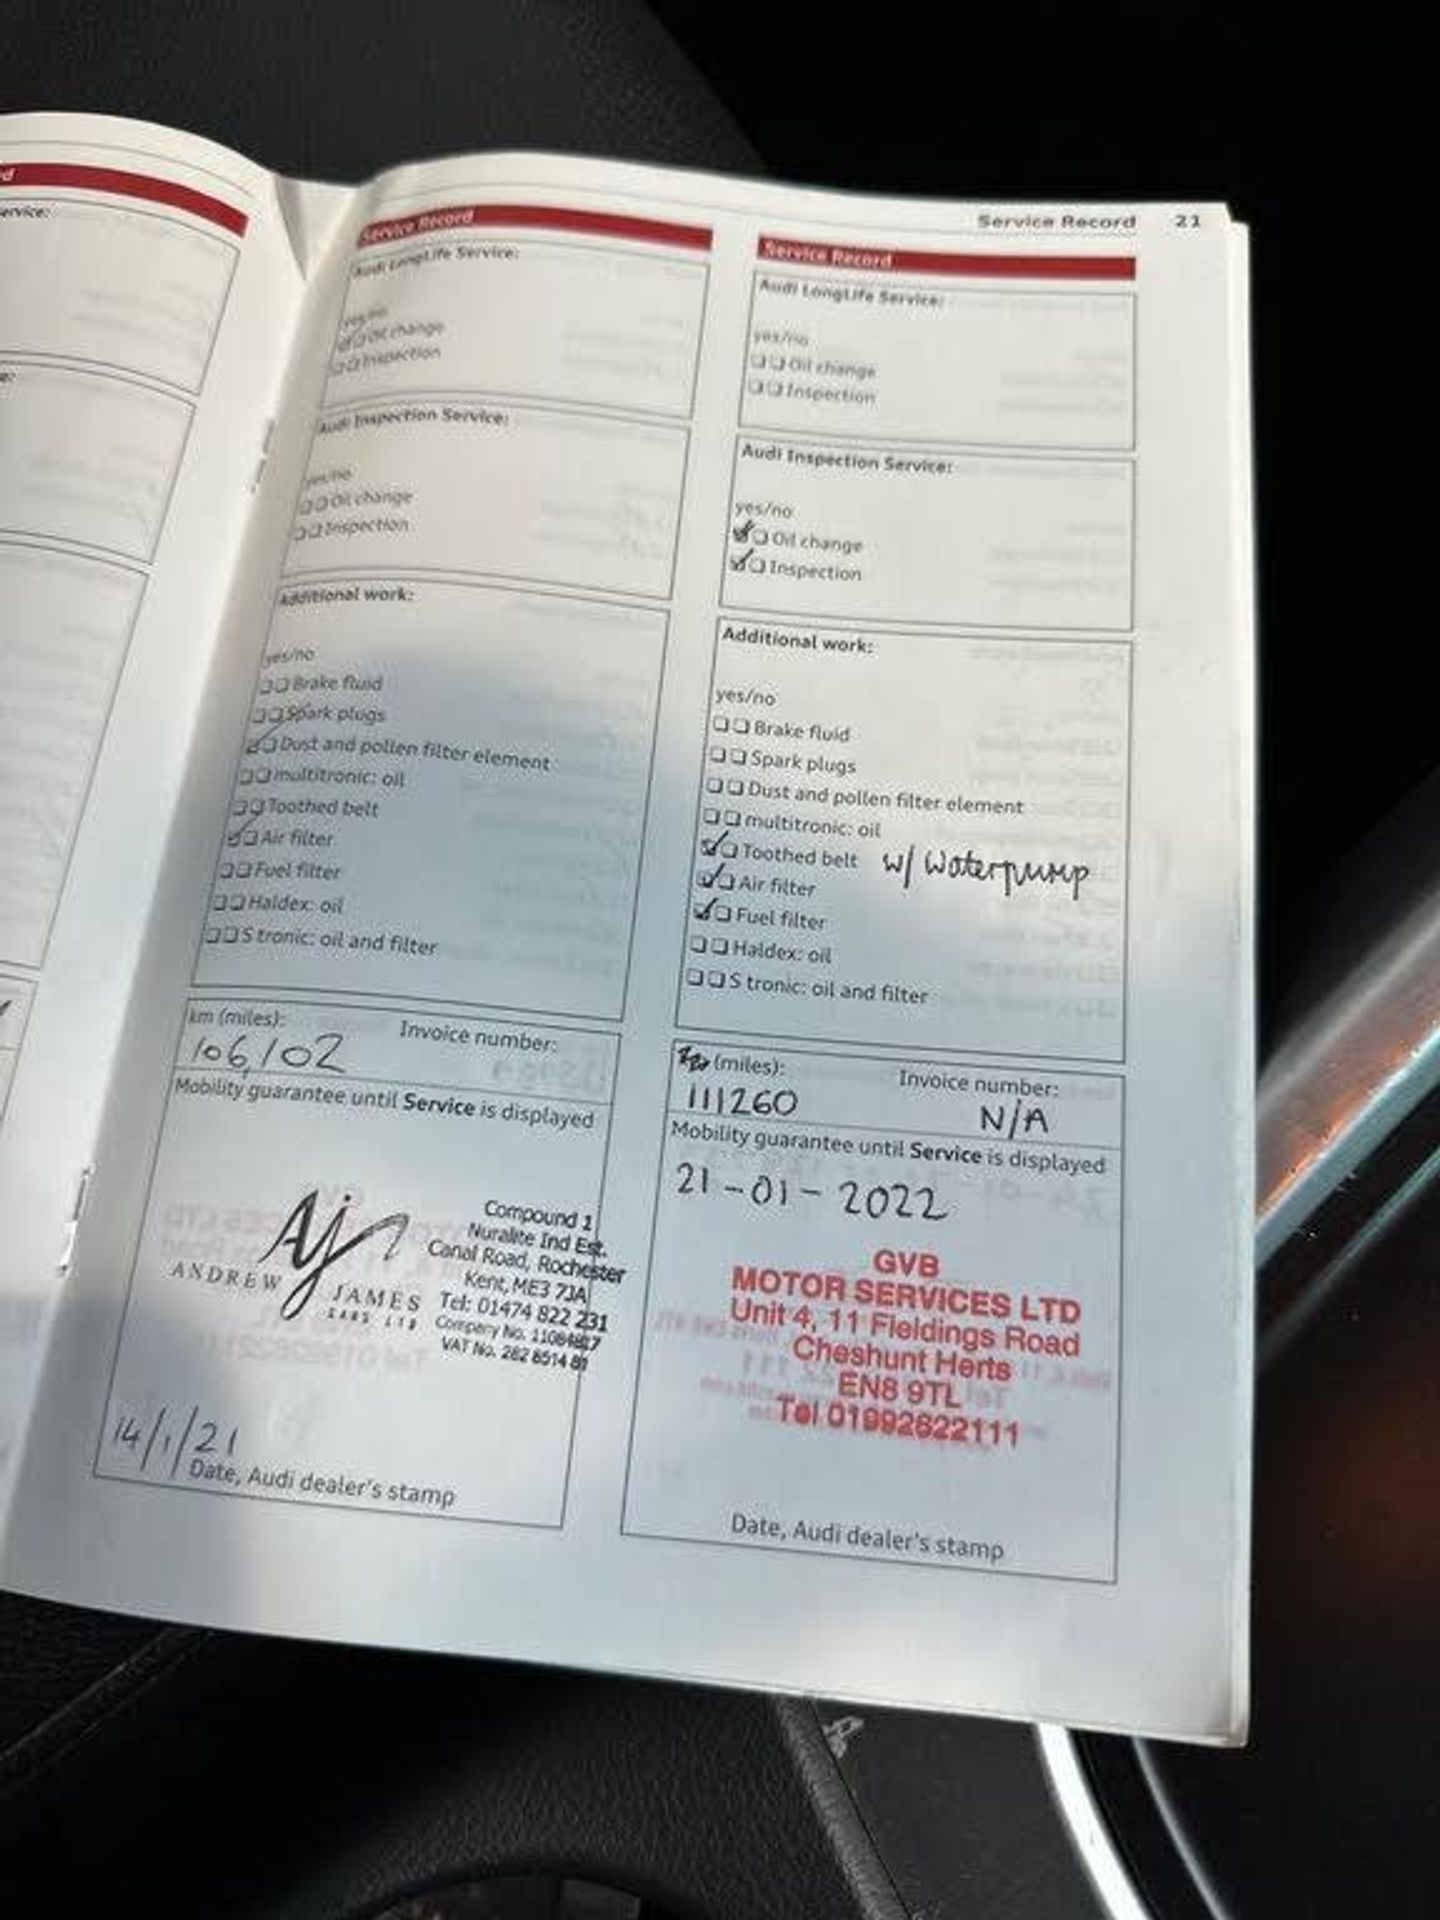 Service Record 21
d
ervice:
e:
Service Record
Audi LongLife Service:
yes/no
Oil change
Inspection
Audi Inspection Service:
yes/no
Oil change
Inspection
Additional work:
yes/no
Brake fluid
Spark plugs
Dust and pollen filter element
multitronic: oil
Toothed belt
Air filter
Fuel filter
Haldex: oil
S tronic: oil and filter
km (miles): Invoice number:
106,102
Mobility guarantee until Service is displayed
Aj
ANDREW
JAMES
CARS LTD
Compound 1
Nuralite Ind Est.
Canal Road, Rochester
Kent, ME3 7JA
Tel: 01474 822 231
Company No. 11084817
VAT No. 282 8514 81
14/1/21
Date, Audi dealer's stamp
Service Record
Audi LongLife Service:
yes/no
Oil change
Inspection
Audi Inspection Service:
yes/no
Oil change
Inspection
Additional work:
yes/no
Brake fluid
Spark plugs
Dust and pollen filter element
multitronic: oil
Toothed belt w/ Waterpump
Air filter
Fuel filter
Haldex: oil
S tronic: oil and filter
(miles): Invoice number:
111260 N/A
Mobility guarantee until Service is displayed
21-01-2022
GVB
MOTOR SERVICES LTD
Unit 4, 11 Fieldings Road
Cheshunt Herts
EN8 9TL
Tel 01992622111
Date, Audi dealer's stamp